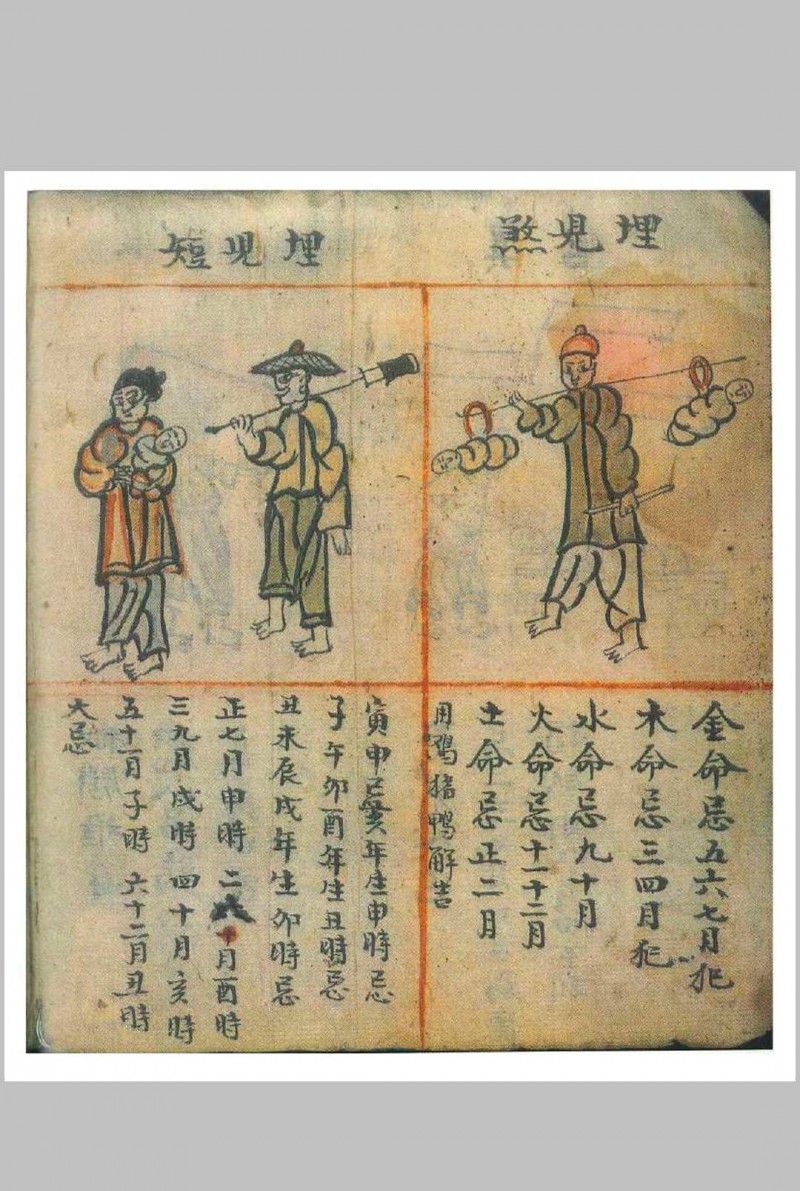 埋児煞
金命忌五六七月犯
木命忌三四月犯
水命忌九十月
火命忌十一十二月
土命忌正二月
用猪鴨解吉
埋児短
寅申忌亥年生申時忌
子午卯酉年生丑時忌
丑未辰戌年生卯時忌
正七月申時 二八十月酉時
三九月戌時 四十月亥時
五十一月子時 六十二月丑時
大忌